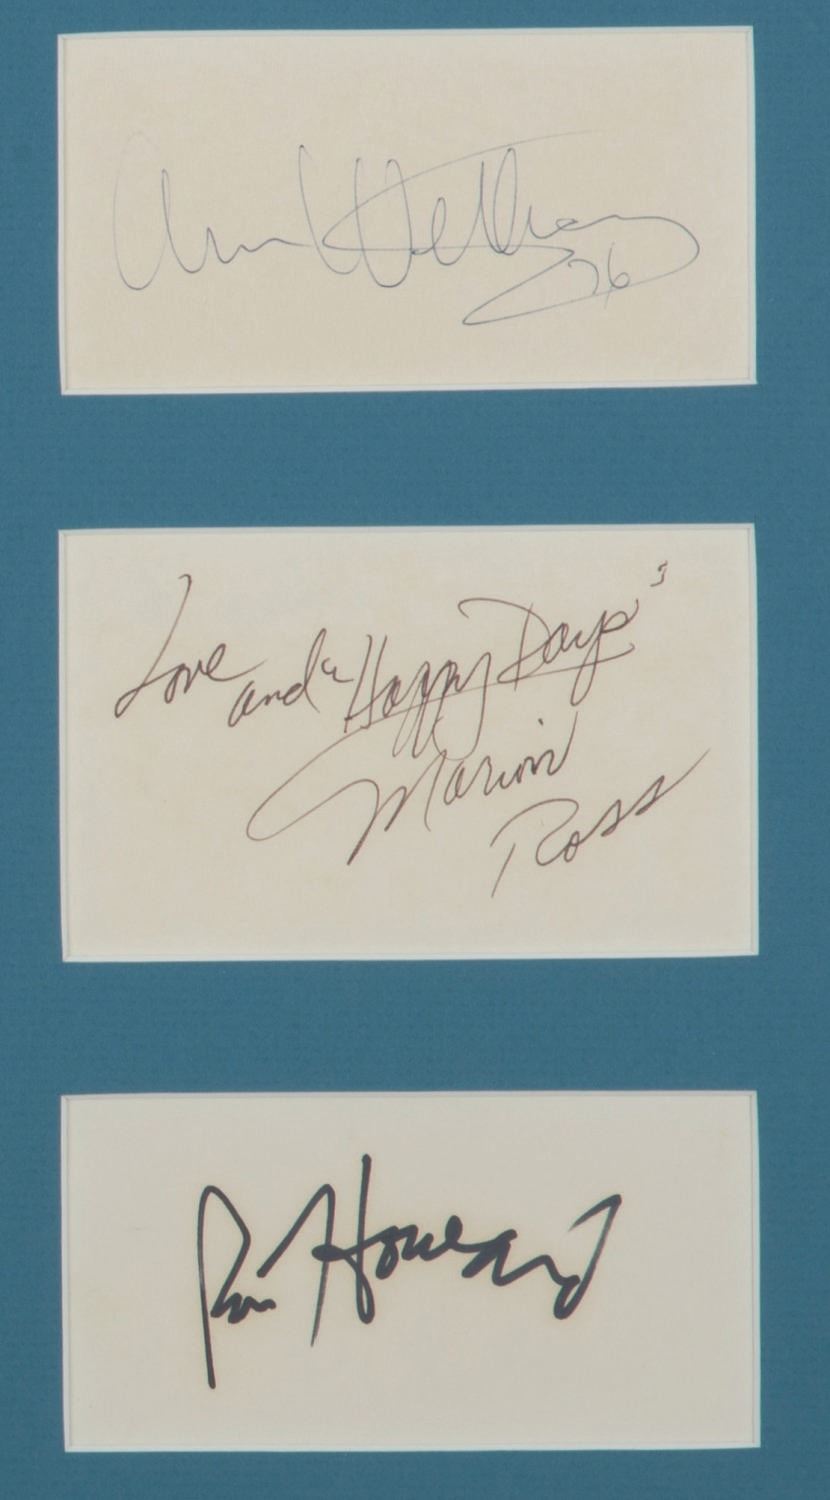 Anson Williams
76
Love and "Happy Days"
Marion
Ross
Ron Howard